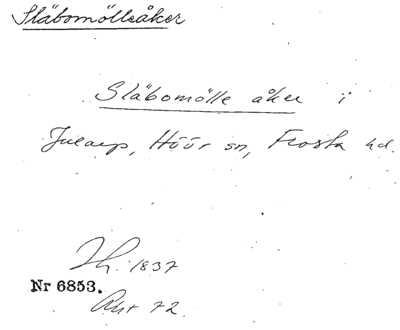 Släbomölleåker
Släbomölle åker i
Jularp, Höör sn, Frosta hd.
Lh. 1837
Nr 6853.
Akt 72.